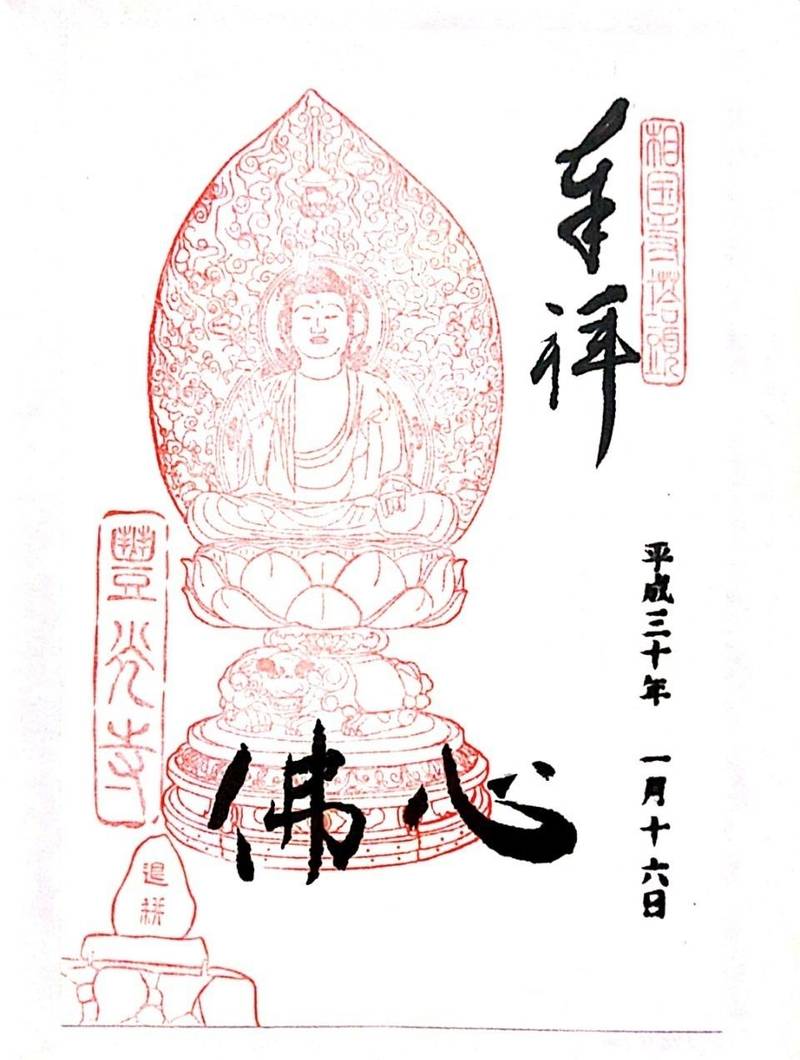 相国寺塔頭
奉拝
平成三十年 一月十六日
佛心
豐光寺
退耕